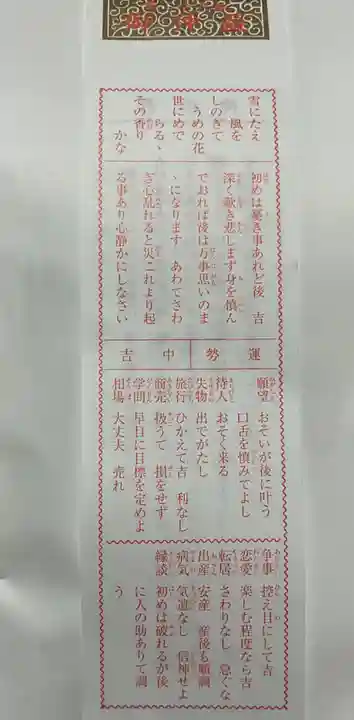 雪にたえ
風を
しのぎて
うめの花
世にめで
らるゝ
その香り
かな
初めは憂き事あれど後 吉
深く歎き悲しまず身を慎ん
でおれば後は万事思いのま
ゝになります あわてさわ
ぎ心乱れると災これより起
る事あり心静かにしなさい
運勢
中吉
願望 おそいが後に叶う
口舌を慎みてよし
待人 おそく来る
失物 出でがたし
旅行 ひかえて吉 利なし
商売 扱うて 損をせず
学問 早目に目標を定めよ
相場 大丈夫 売れ
争事 控え目にして吉
恋愛 楽しむ程度なら吉
転居 さわりなし 急ぐな
出産 安産 産後も順調
病気 気遣なし 信神せよ
縁談 初めは破れるが後
に人の助ありて調
う